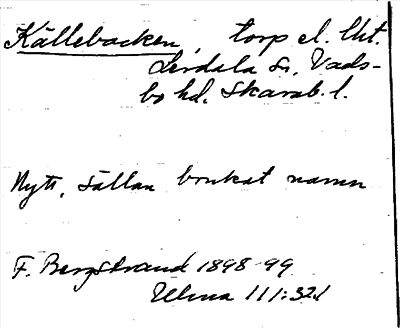 Källebacken, torp el. lht.
Lerdala sn, Vads-
bo hd. Skarab. l.
Nytt, sällan brukat namn
F. Bergstrand 1898-99
Ulma 111:32